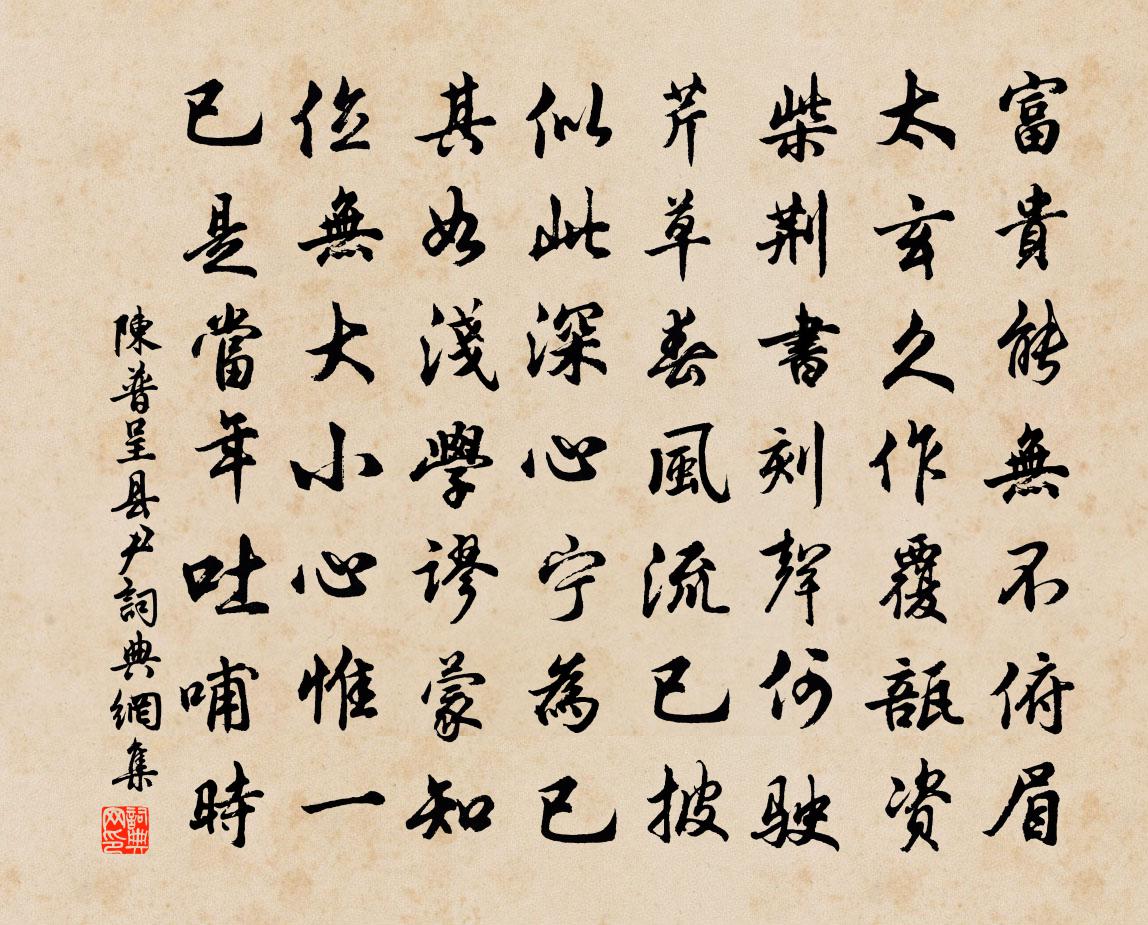 富貴能無不俯眉
太玄久作覆瓿資
柴荆書刻聲何駛
芹草春風流已披
似此深心宁為已
其如淺學謬蒙知
位無大小心惟一
已是當年吐哺時
陳普呈县尹詞典網集
詞典网印